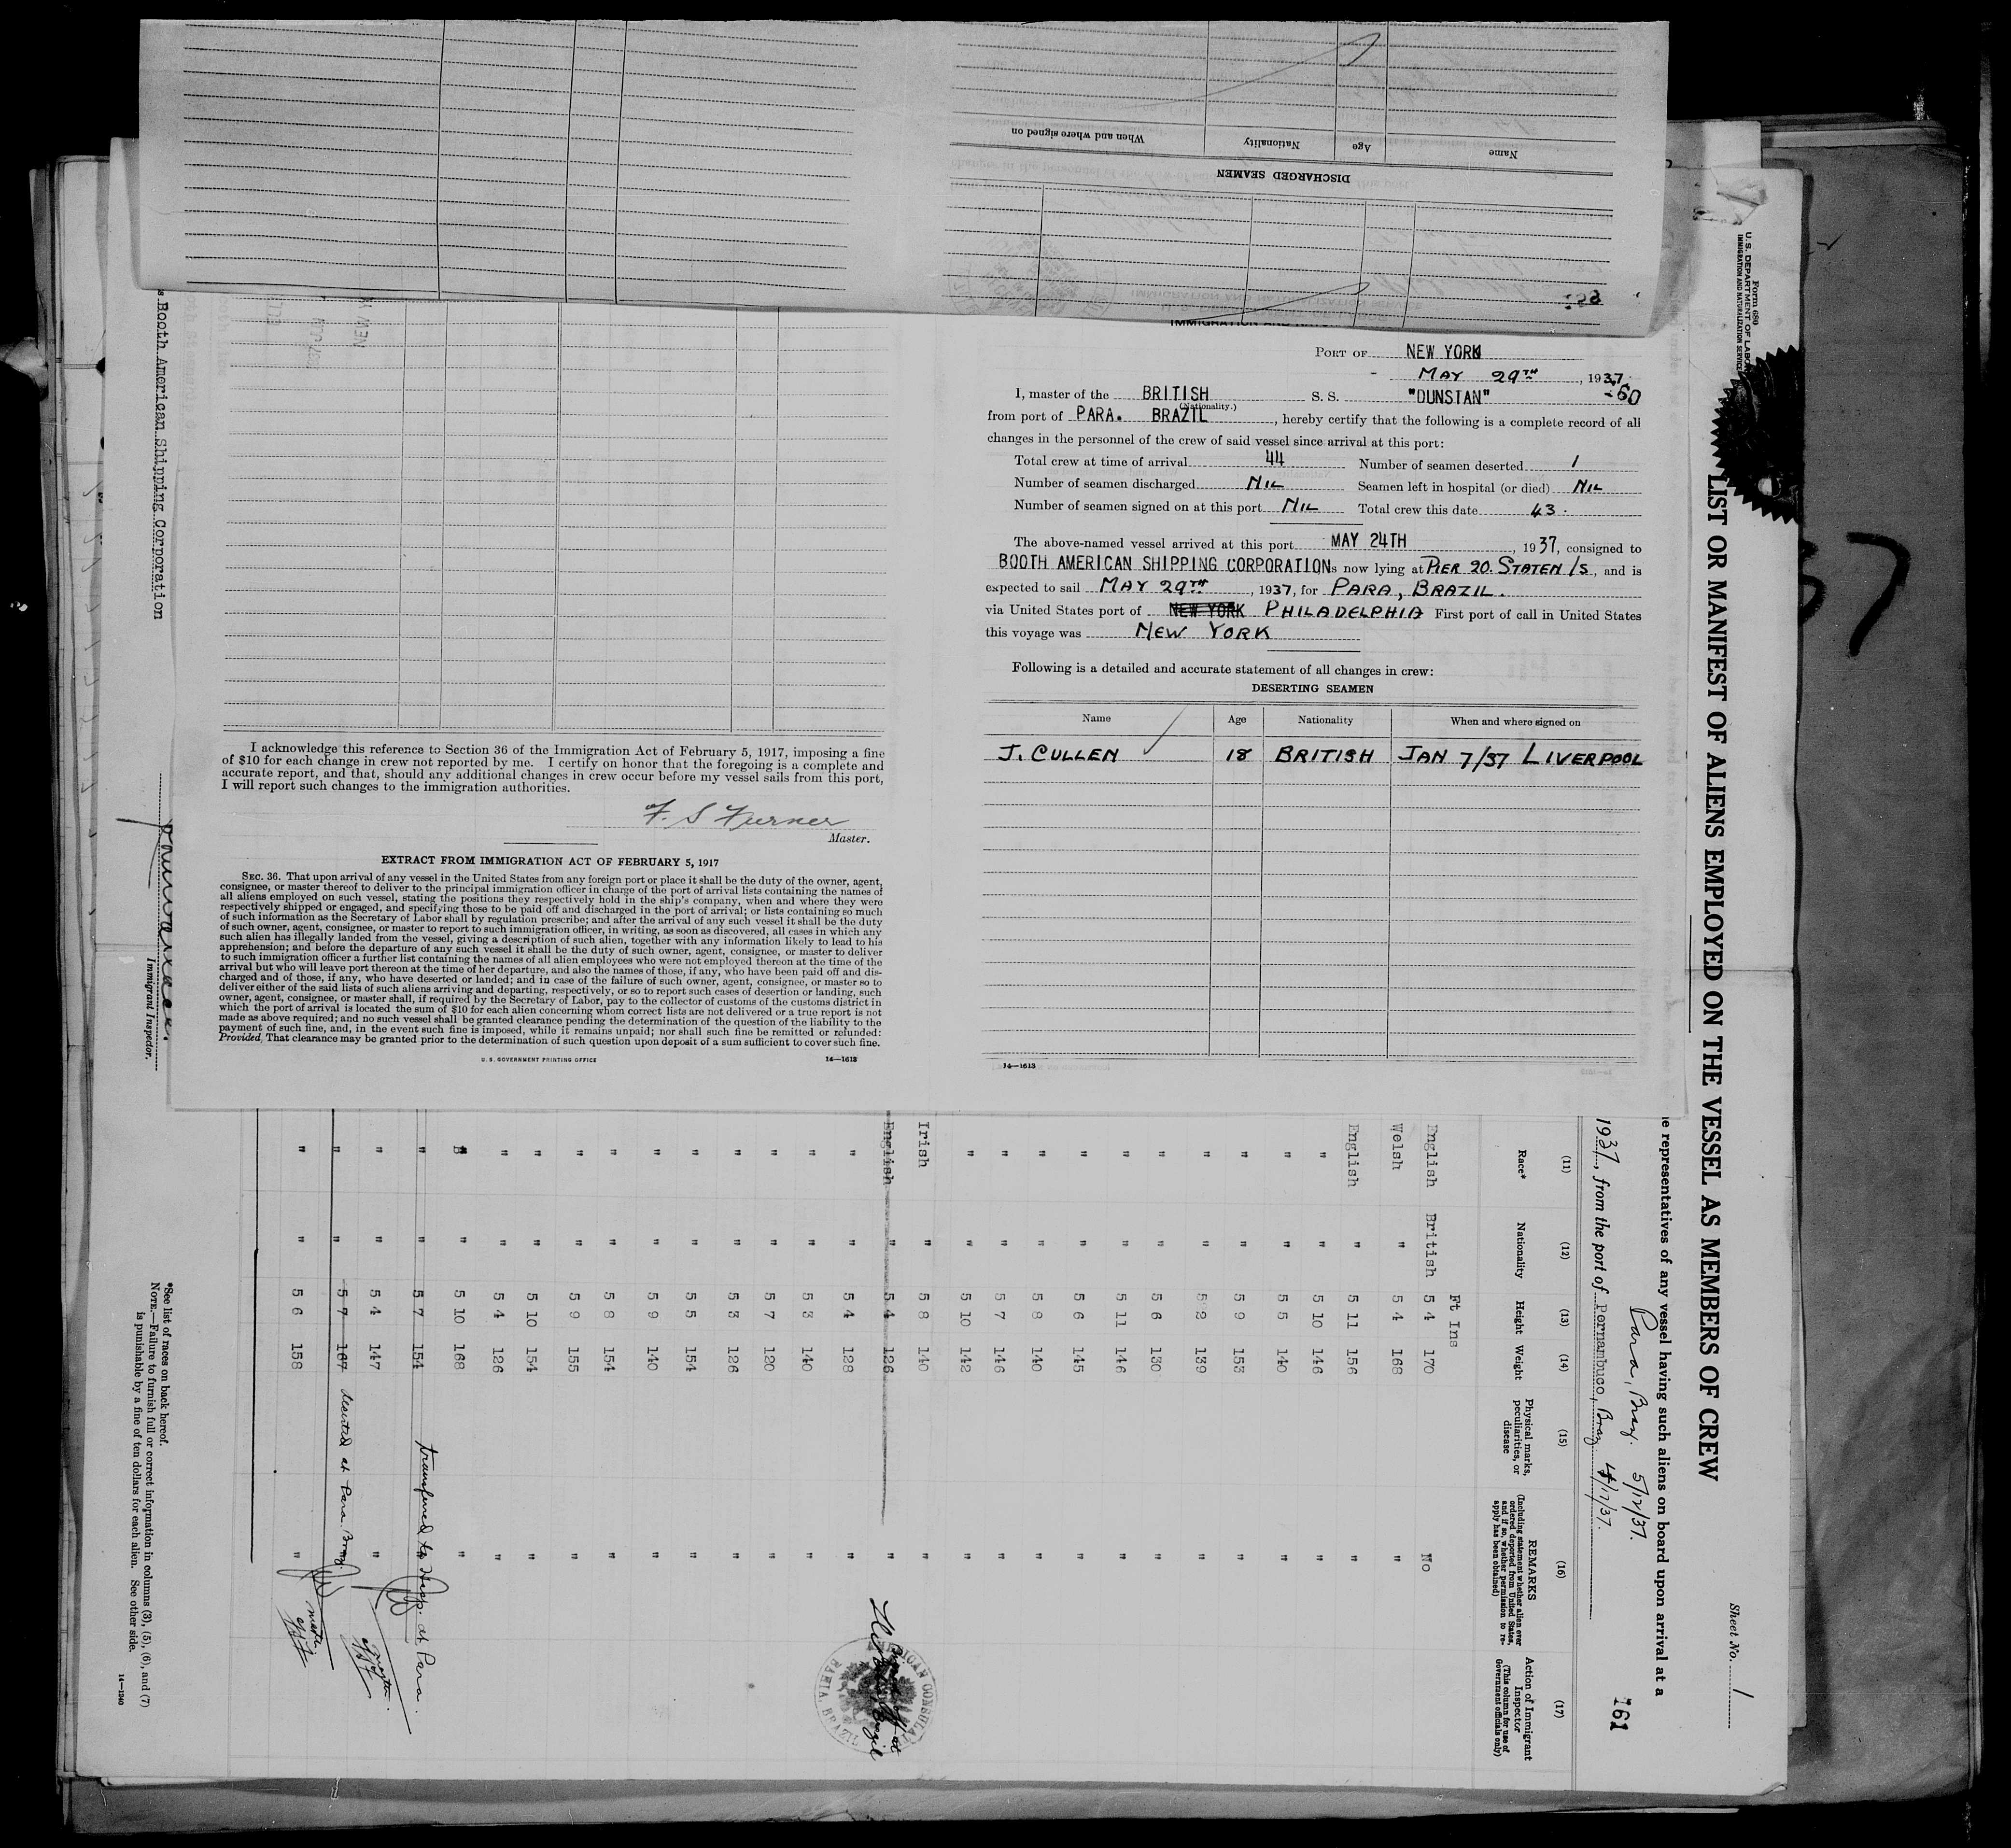 When and where signed on
Nationality
Age
Name
DISCHARGED SEAMEN
PORT OF NEW YORK
MAY 29TH, 1937
I, master of the BRITISH S. S. "DUNSTAN"
(Nationality.)
from port of PARA. BRAZIL, hereby certify that the following is a complete record of all
changes in the personnel of the crew of said vessel since arrival at this port:
Total crew at time of arrival 44 Number of seamen deserted 1
Number of seamen discharged NIL Seamen left in hospital (or died) NIL
Number of seamen signed on at this port NIL Total crew this date 43.
The above-named vessel arrived at this port MAY 24TH, 1937, consigned to
BOOTH AMERICAN SHIPPING CORPORATION is now lying at PIER 20. STATEN IS, and is
expected to sail MAY 29TH, 1937, for PARA, BRAZIL.
via United States port of NEW YORK PHILADELPHIA First port of call in United States
this voyage was NEW YORK
Following is a detailed and accurate statement of all changes in crew:
DESERTING SEAMEN
Name Age Nationality When and where signed on
J. CULLEN 18 BRITISH JAN 7/37 LIVERPOOL
14—1613
I acknowledge this reference to Section 36 of the Immigration Act of February 5, 1917, imposing a fine
of $10 for each change in crew not reported by me. I certify on honor that the foregoing is a complete and
accurate report, and that, should any additional changes in crew occur before my vessel sails from this port,
I will report such changes to the immigration authorities.
Master.
EXTRACT FROM IMMIGRATION ACT OF FEBRUARY 5, 1917
SEC. 36. That upon arrival of any vessel in the United States from any foreign port or place it shall be the duty of the owner, agent,
consignee, or master thereof to deliver to the principal immigration officer in charge of the port of arrival lists containing the names of
all aliens employed on such vessel, stating the positions they respectively hold in the ship's company, when and where they were
respectively shipped or engaged, and specifying those to be paid off and discharged in the port of arrival; or lists containing so much
of such information as the Secretary of Labor shall by regulation prescribe; and after the arrival of any such vessel it shall be the duty
of such owner, agent, consignee, or master to report to such immigration officer, in writing, as soon as discovered, all cases in which any
such alien has illegally landed from the vessel, giving a description of such alien, together with any information likely to lead to his
apprehension; and before the departure of any such vessel it shall be the duty of such owner, agent, consignee, or master to deliver
to such immigration officer a further list containing the names of all alien employees who were not employed thereon at the time of the
arrival but who will leave port thereon at the time of her departure, and also the names of those, if any, who have been paid off and dis-
charged and of those, if any, who have deserted or landed; and in case of the failure of such owner, agent, consignee, or master so to
deliver either of the said lists of such aliens arriving and departing, respectively, or so to report such cases of desertion or landing, such
owner, agent, consignee, or master shall, if required by the Secretary of Labor, pay to the collector of customs of the customs district in
which the port of arrival is located the sum of $10 for each alien concerning whom correct lists are not delivered or a true report is not
made as above required; and no such vessel shall be granted clearance pending the determination of the question of the liability to the
payment of such fine, and, in the event such fine is imposed, while it remains unpaid; nor shall such fine be remitted or refunded:
Provided, That clearance may be granted prior to the determination of such question upon deposit of a sum sufficient to cover such fine.
U. S. GOVERNMENT PRINTING OFFICE 14—1613
Form 680
U. S. DEPARTMENT OF LABOR
IMMIGRATION AND NATURALIZATION SERVICE
Sheet No. 1
LIST OR MANIFEST OF ALIENS EMPLOYED ON THE VESSEL AS MEMBERS OF CREW
representatives of any vessel having such aliens on board upon arrival at a
Para, Braz. 5/12/37.
1937, from the port of Pernambuco, Braz.
161
(11) (12) (13) (14) (15) (16) (17)
Race* Nationality Height Weight Physical marks, peculiarities, or disease REMARKS (Including statement whether alien ever ordered deported from United States, and if so, whether permission to reapply has been obtained) Action of Immigrant Inspector (This column for use of Government officials only)
Ft Ins
English British 5 4 170 No
Welsh " 5 4 168 "
English " 5 11 156 "
" " 5 10 146 "
" " 5 5 140 "
" " 5 9 153 "
" " 5 2 139 "
" " 5 6 130 "
" " 5 11 146 "
" " 5 6 145 "
" " 5 8 140 "
" " 5 7 146 "
" " 5 10 142 "
Irish " 5 8 140 "
English " 5 4 126 "
" " 5 4 128 "
" " 5 3 140 "
" " 5 7 120 "
" " 5 3 126 "
" " 5 5 154 "
" " 5 9 140 "
" " 5 8 154 "
" " 5 9 155 "
" " 5 10 154 "
" " 5 4 126 "
" " 5 10 168 "
" " 5 7 154 transferred to Hosp. at Para.
" " 5 4 147 "
" " 5 7 167 deserted at Para. Braz.
" " 5 6 158 "
AMERICAN CONSULATE
BAHIA, BRAZIL
*See list of races on back hereof.
NOTE.—Failure to furnish full or correct information in columns (3), (5), (6), and (7)
is punishable by a fine of ten dollars for each alien. See other side.
14—1240
Booth American Shipping Corporation
Immigrant Inspector.